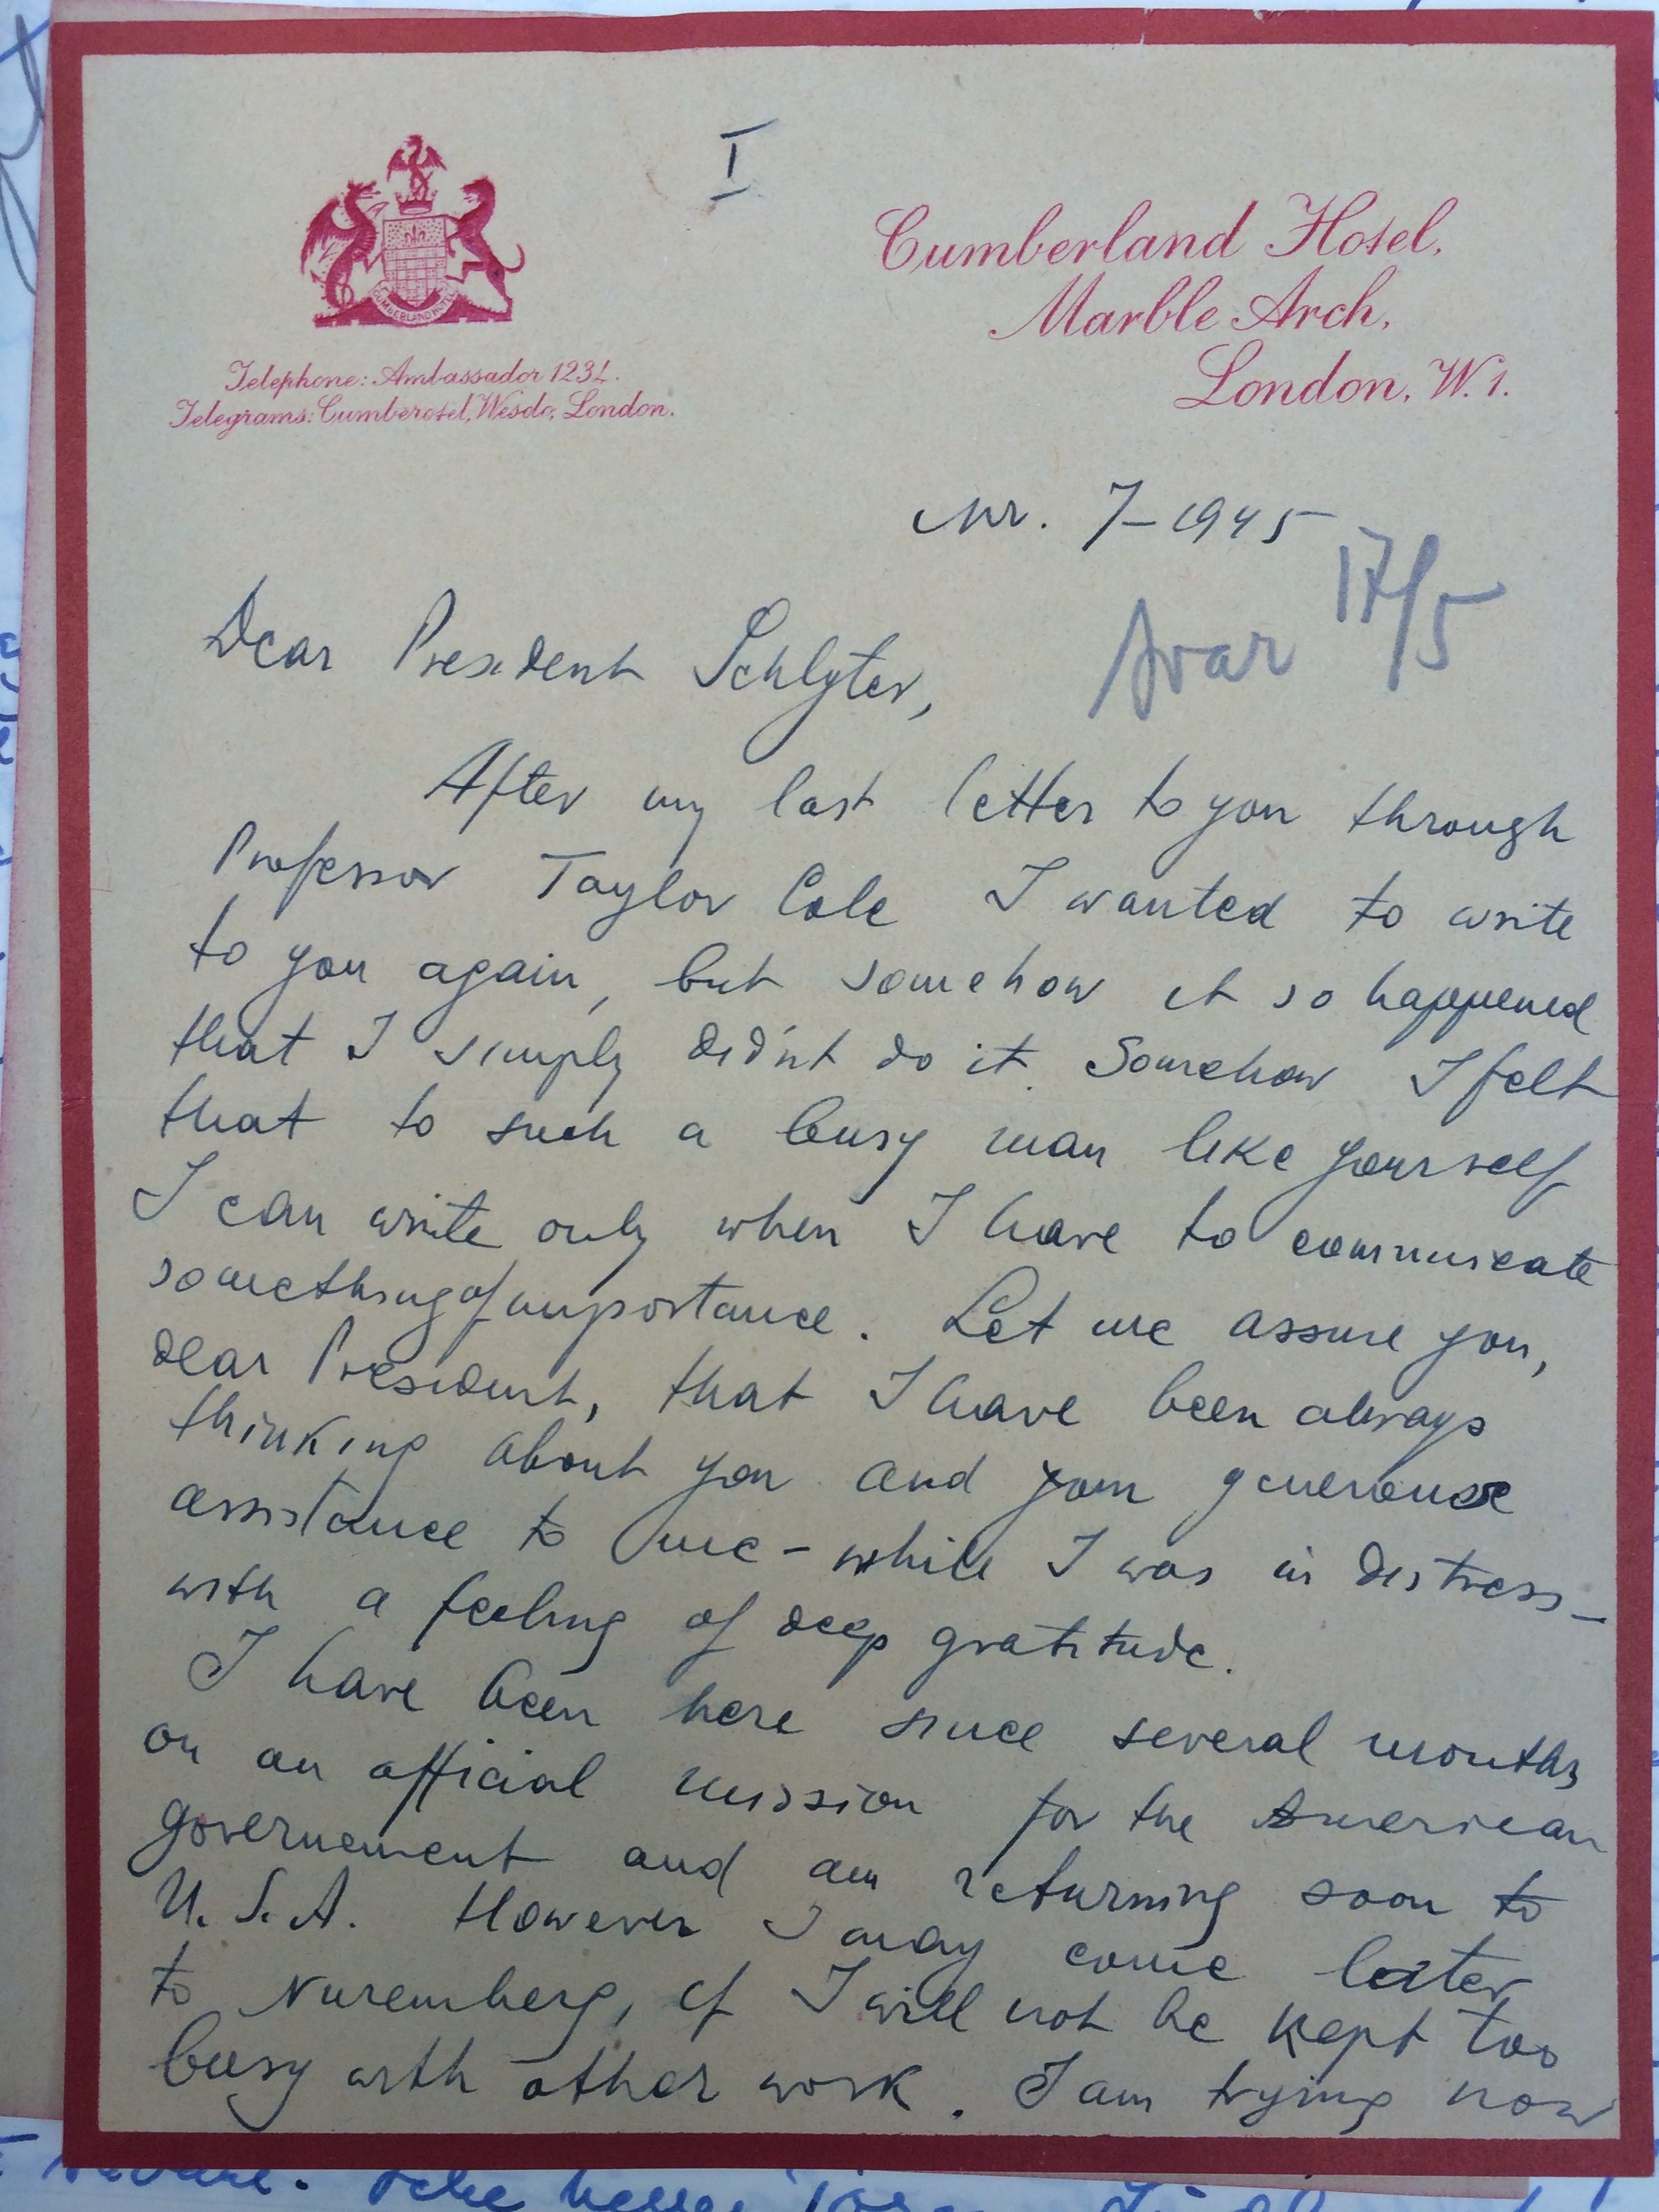 I
CUMBERLAND HOTEL
Telephone: Ambassador 1234.
Telegrams: Cumberotel, Wesdo, London.
Cumberland Hotel,
Marble Arch,
London, W.1.
Nr. 7-1945
Svar 17/5
Dear President Schlyter,
After my last letter to you through
Professor Taylor Cole I wanted to write
to you again, but somehow it so happened
that I simply did'nt do it. Somehow I felt
that to such a busy man like yourself
I can write only when I have to communicate
something of importance. Let me assure you,
dear President, that I have been always
thinking about you and your generouse
assistance to me - while I was in distress -
with a feeling of deep gratitude.
I have been here since several months
on an official mission for the American
governement and am returning soon to
U.S.A. However I may come later
to Nuremberg, if I will not be kept too
busy with other work. I am trying now